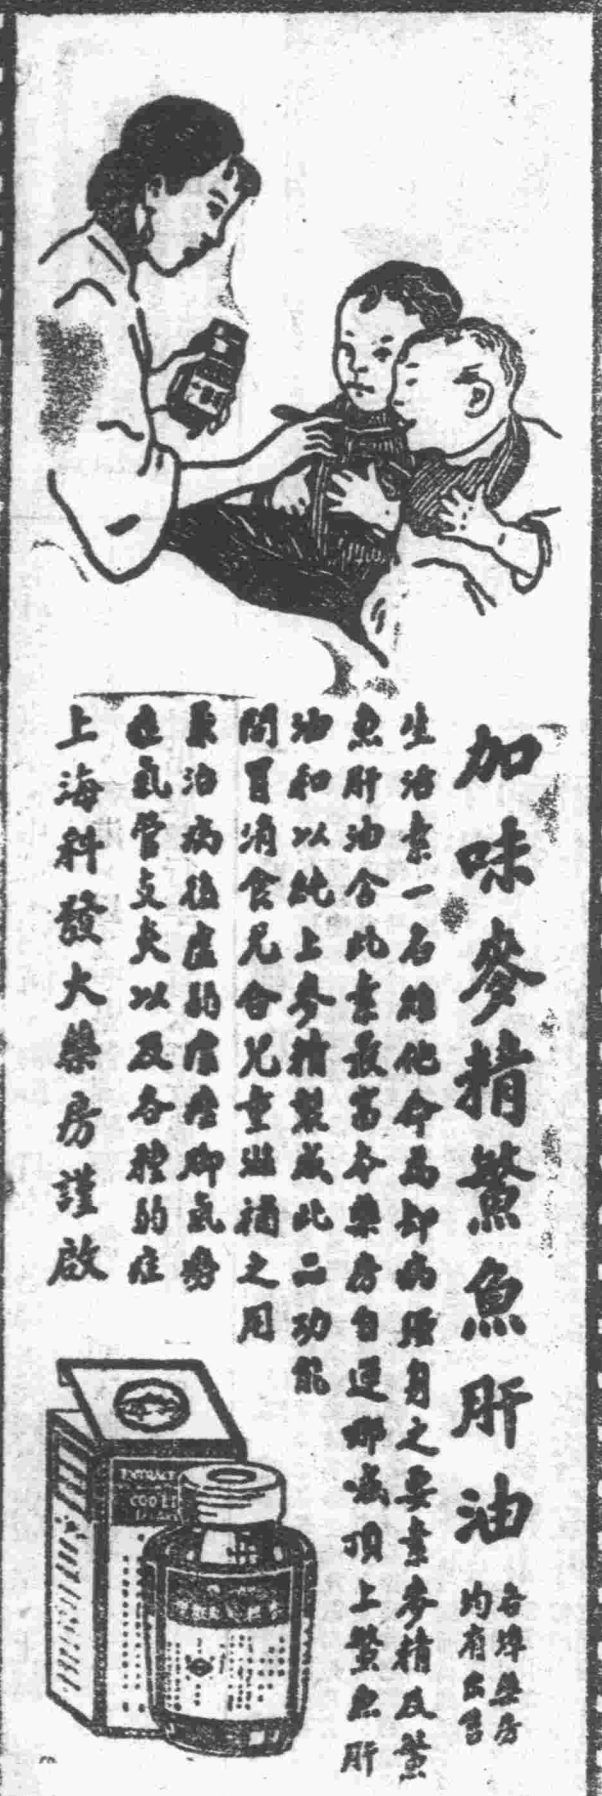 加味麥精鱉魚肝油
各埠藥房
均有出售
生活素一名維他命為卻病強身之要素麥精及鱉
魚肝油含此素最富本藥房自運挪威頂上鱉魚肝
油和以純上麥精製成此二功能
開胃消食兒合兒童滋補之用
兼治病後虛弱癆瘵腳氣勞
症氣管支炎以及各種的症
上海科發大藥房謹啟
EXTRACT
COD LI